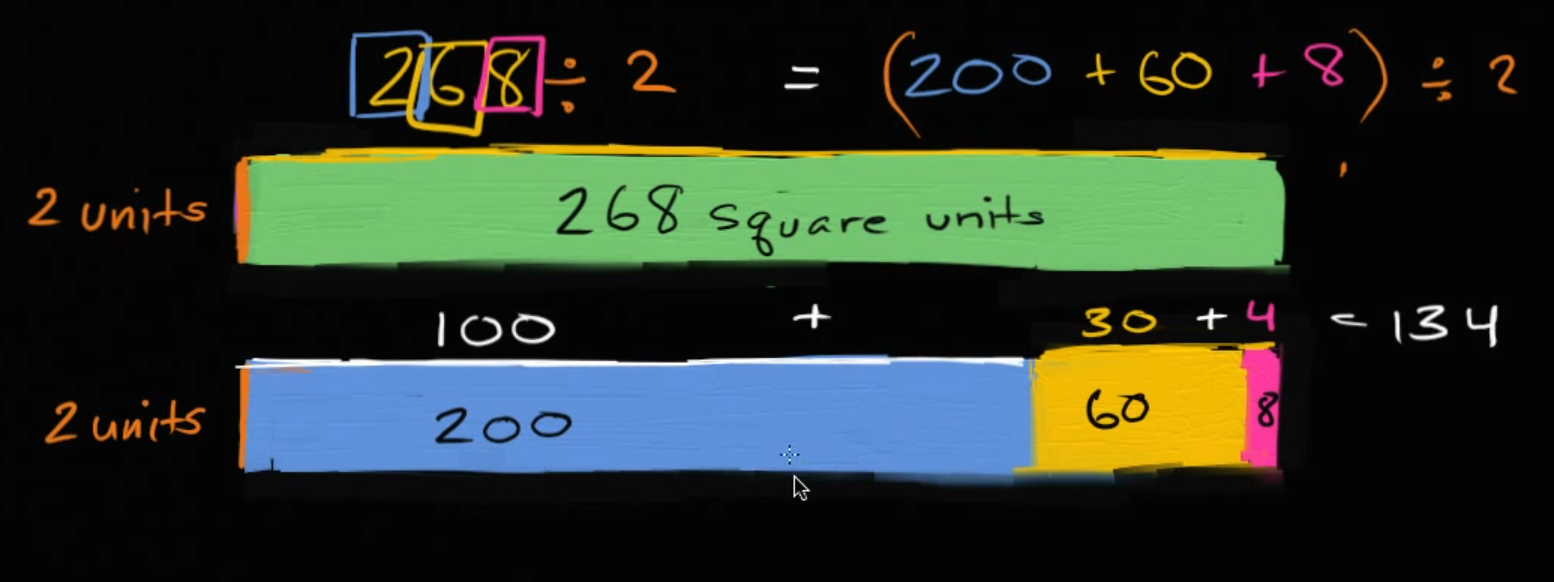 268 ÷ 2 = (200 + 60 + 8) ÷ 2
2 units 268 square units
100 + 30 + 4 = 134
2 units 200 60 8